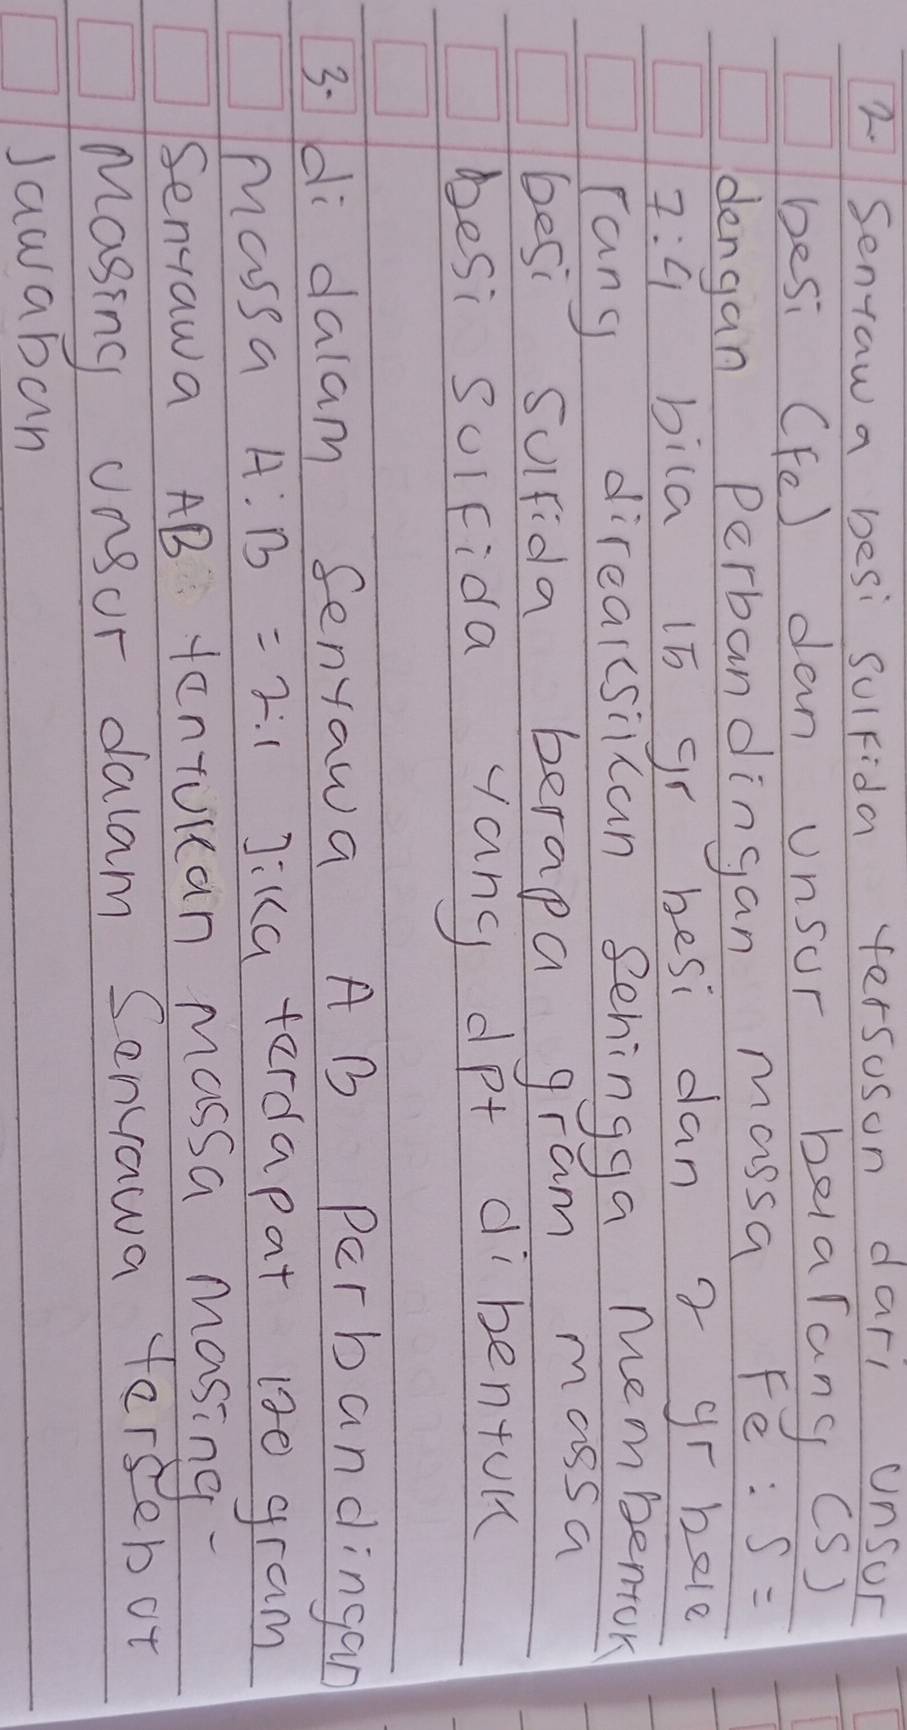 2. Senyawa besi sulfida tersusun dari unsur
besi (Fe) dan unsur belarang (S)
dengan perbandingan massa Fe : S =
7:4 bila 15 gr besi dan 2 gr bele
rang direaksikan sehingga membentuk
besi sulfida berapa gram massa
besi sulfida yang dpt dibentuk
3. di dalam senyawa AB perbandingan
massa A:B = 2:1 Jika terdapat 120 gram
senyawa AB tentukan massa masing-
masing unsur dalam senyawa tersebut
Jawaban